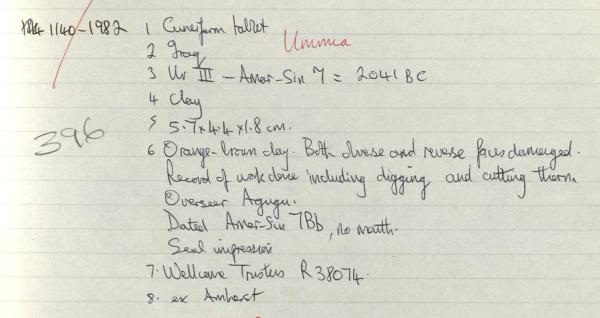 1140-1982 1 Cuneiform tablet
Umma
2 Iraq
3 Ur III - Amar-Sin 7 = 2041 BC
4 Clay
396
5 5.7 x 4.4 x 1.8 cm.
6 Orange-brown clay. Both obverse and reverse faces damaged.
Record of work done including digging and cutting thorn.
Overseer Agugu.
Dated Amar-Sin 7Bb, no month.
Seal impression
7. Wellcome Trustees R 38074.
8. ex Amherst